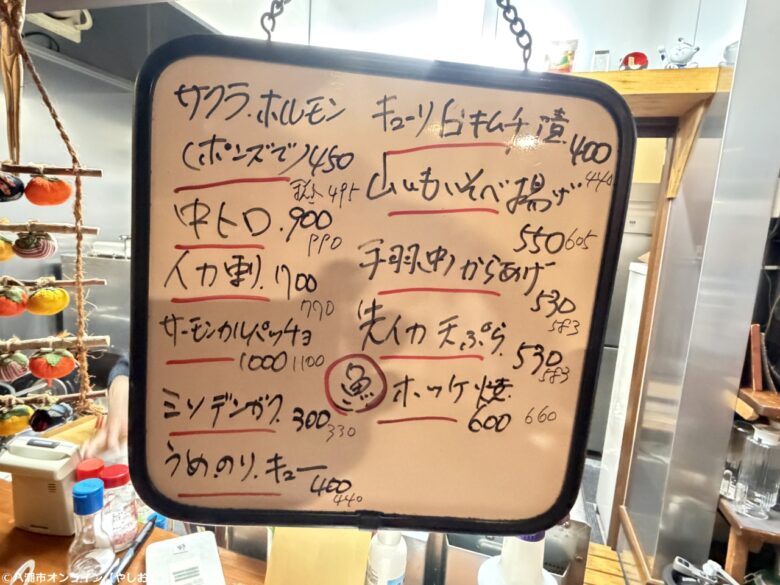 サクラ.ホルモン
(ポンズで)450
税込495
中トロ.900
990
イカ刺.700
770
サーモンカルパッチョ
1000 1100
ミソデンガク.300
330
うめ.のり.キュー
400
440
キューリ白キムチ漬.400
440
山いもいそべ揚げ
550 605
手羽中からあげ
530
583
先イカ天ぷら.530
583
魚
ホッケ焼.
600 660